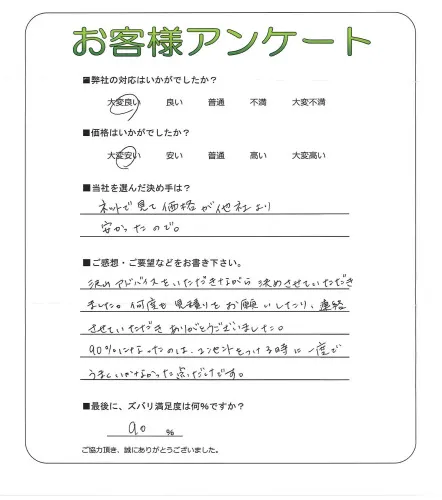 お客様アンケート
■弊社の対応はいかがでしたか？
大変良い 良い 普通 不満 大変不満
■価格はいかがでしたか？
大変安い 安い 普通 高い 大変高い
■当社を選んだ決め手は？
ネットで見て価格が他社より
安かったので。
■ご感想・ご要望などをお書き下さい。
決めアドバイスをいただきながら決めさせていただき
ました。何度も見積りをお願いしたり、連絡
させていただきありがとうございました。
90%になったのは、コンセントをつける時に一度で
うまくいかなかった点だけです。
■最後に、ズバリ満足度は何%ですか？
90 %
ご協力頂き、誠にありがとうございました。